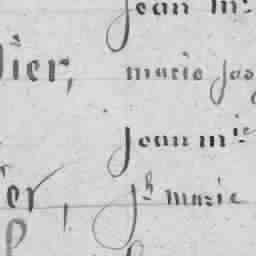 Jean m.
ier, marie Jos
Jean m.ie
er, Jh marie